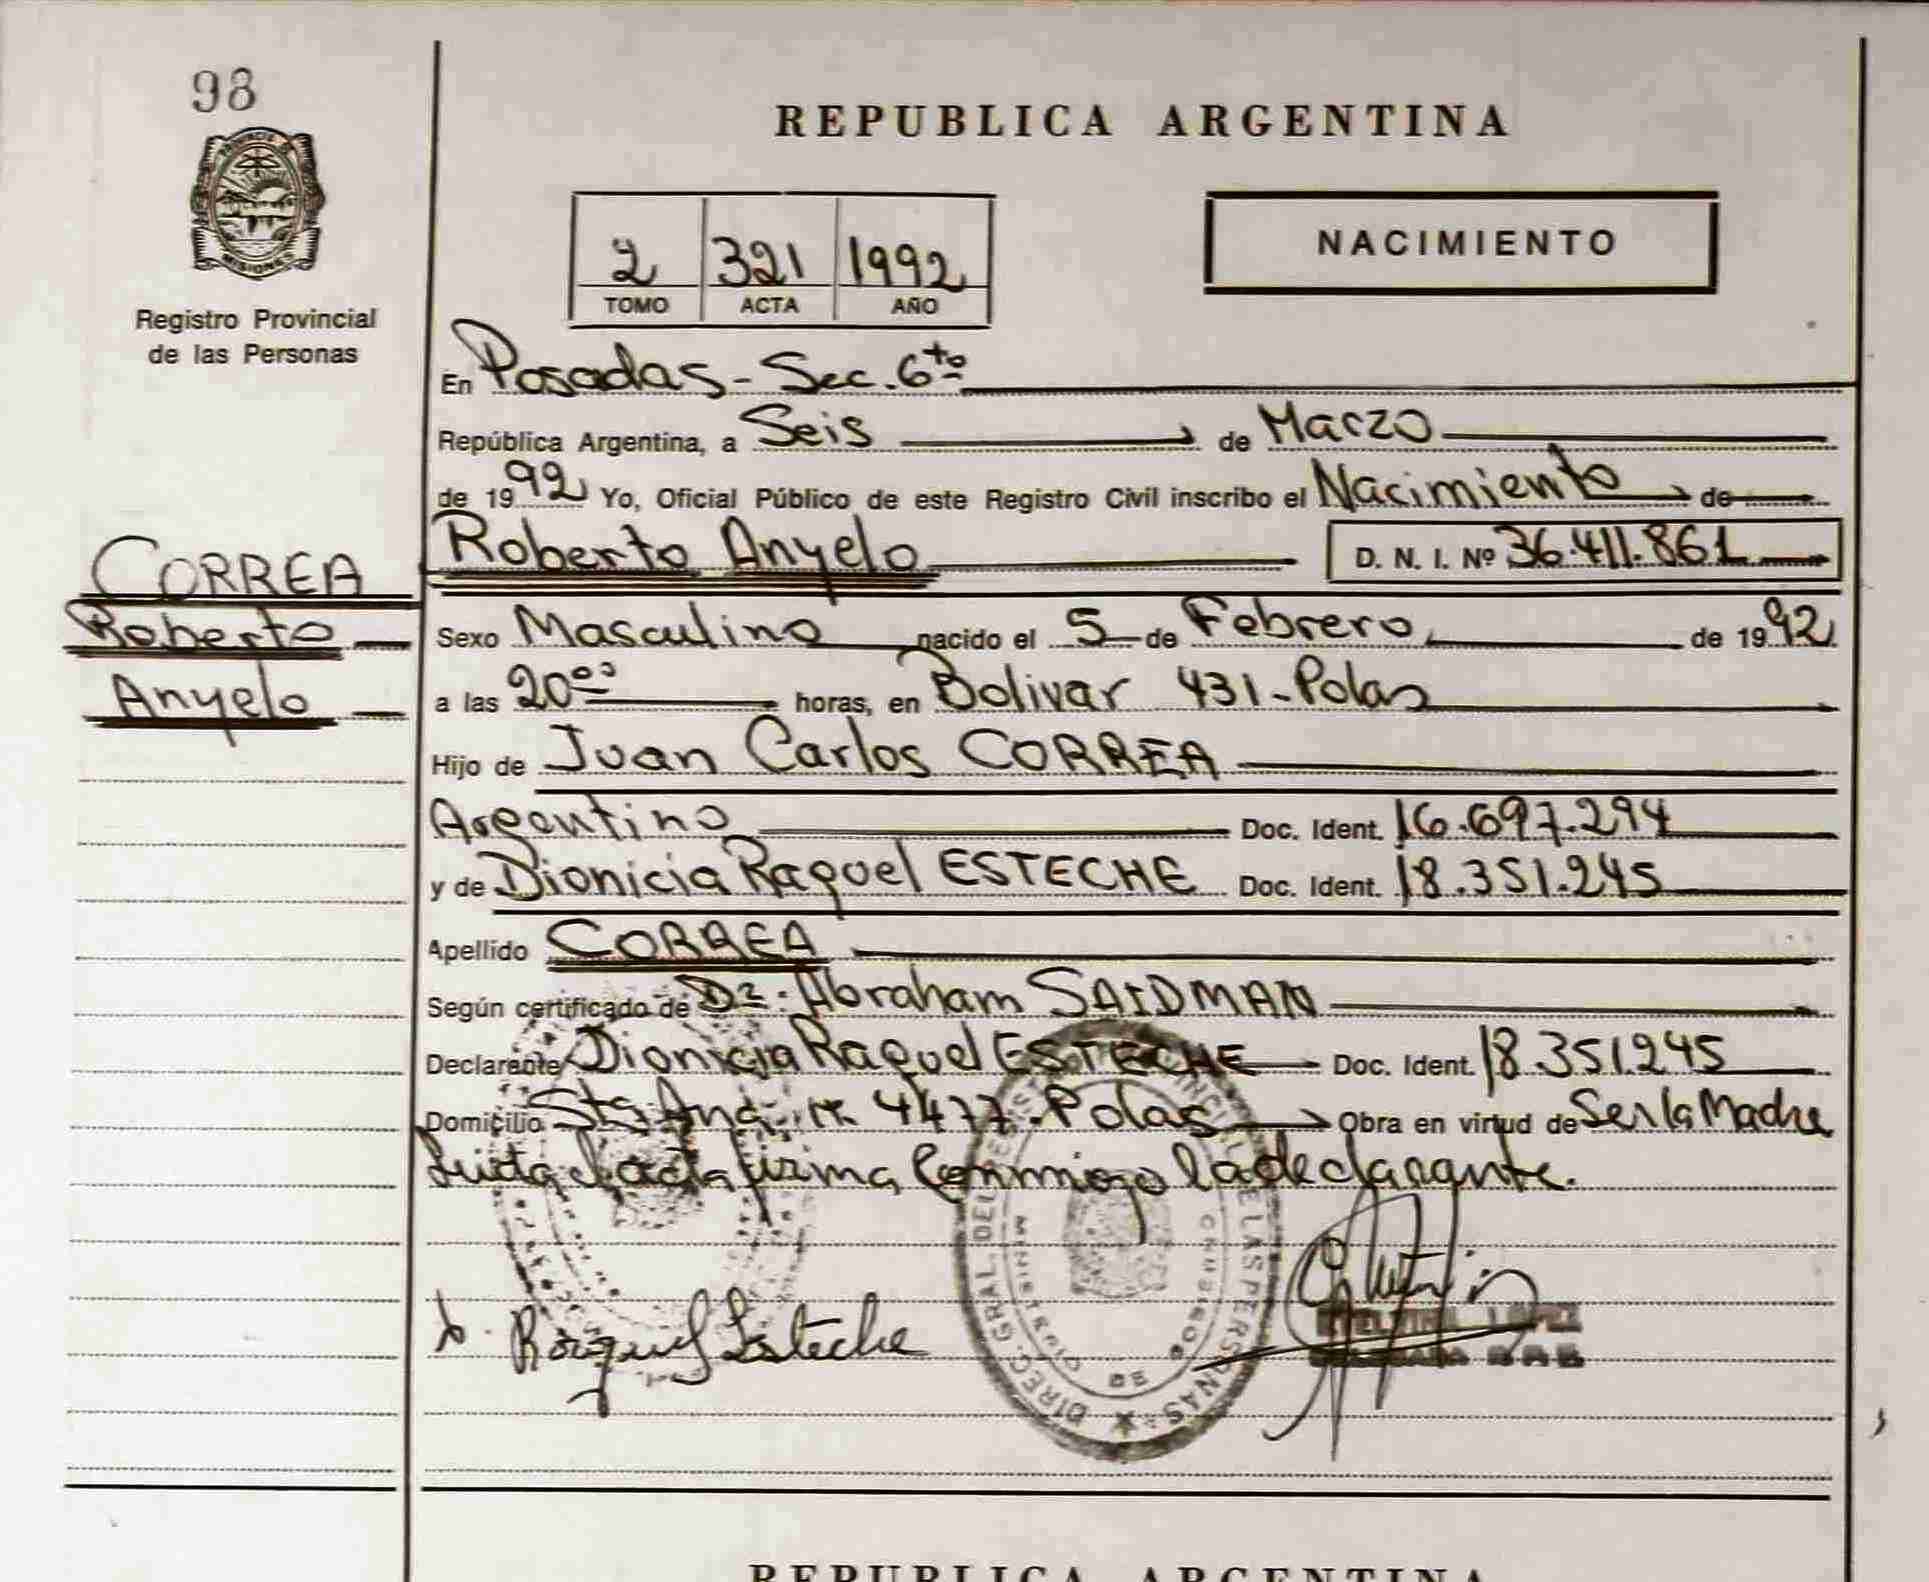 98
REPUBLICA ARGENTINA
PROVINCIA DE
MISIONES
Registro Provincial
de las Personas
2 321 1992
TOMO ACTA AÑO
NACIMIENTO
En Posadas - Sec. 6to
República Argentina, a Seis de Marzo
de 1992 Yo, Oficial Público de este Registro Civil inscribo el Nacimiento de
CORREA
Roberto
Anyelo
Roberto Anyelo D. N. I. Nº 36.411.861
Sexo Masculino nacido el 5 de Febrero de 1992
a las 20oo horas, en Bolivar 431 - Pdas
Hijo de Juan Carlos CORREA
Argentino Doc. Ident. 16.697.294
y de Dionicia Raquel ESTECHE Doc. Ident. 18.351.245
Apellido CORREA
Según certificado de Dr. Abraham SAIDMAN
Declarante Dionicia Raquel ESTECHE Doc. Ident. 18.351.245
Domicilio Sta Ana 4477 - Pdas Obra en virtud de Ser la Madre
Leida el acta firma conmigo la declarante.
Raquel Esteche
DIREC. GRAL. DEL REGISTRO PROVINCIAL DE LAS PERSONAS
MINISTERIO DE GOBIERNO
LOPEZ
REPUBLICA ARGENTINA